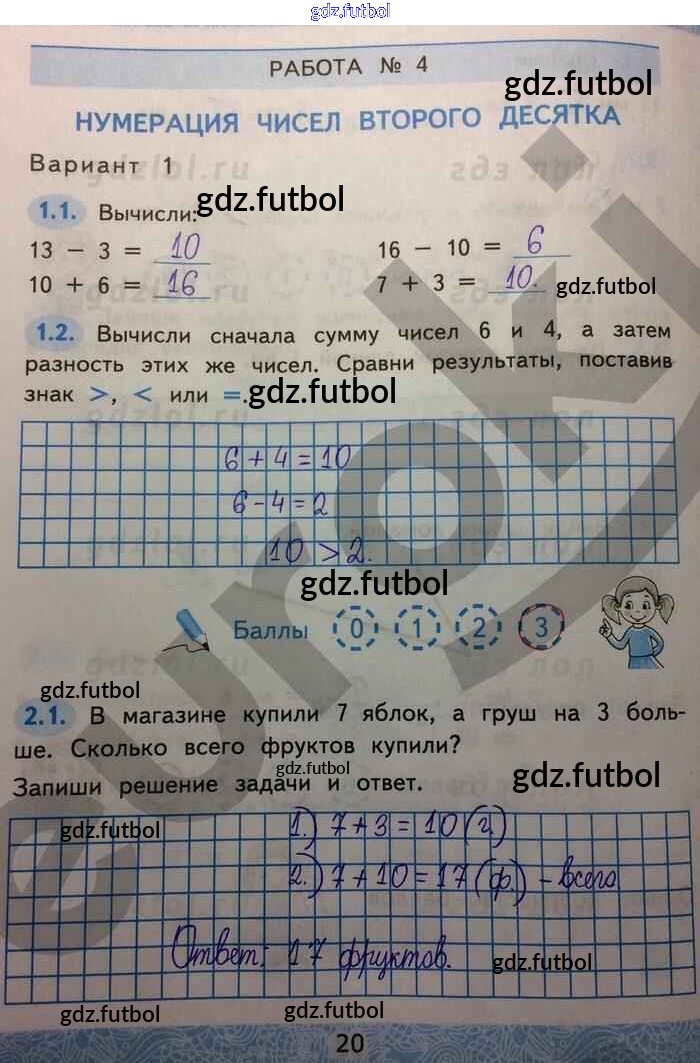 gdz.futbol
РАБОТА № 4
gdz.futbol
НУМЕРАЦИЯ ЧИСЕЛ ВТОРОГО ДЕСЯТКА
Вариант 1
gdz.futbol
1.1. Вычисли:
13 − 3 = 10
16 − 10 = 6
10 + 6 = 16
7 + 3 = 10.
gdz.futbol
1.2. Вычисли сначала сумму чисел 6 и 4, а затем
разность этих же чисел. Сравни результаты, поставив
знак >, < или =.
gdz.futbol
6 + 4 = 10
6 - 4 = 2
10 > 2.
gdz.futbol
Баллы 0 1 2 3
gdz.futbol
2.1. В магазине купили 7 яблок, а груш на 3 боль-
ше. Сколько всего фруктов купили?
gdz.futbol
Запиши решение задачи и ответ.
gdz.futbol
1.) 7 + 3 = 10 (г.)
gdz.futbol
2.) 7 + 10 = 17 (ф.) - всего
Ответ: 17 фруктов.
gdz.futbol
gdz.futbol
gdz.futbol
20
euroki